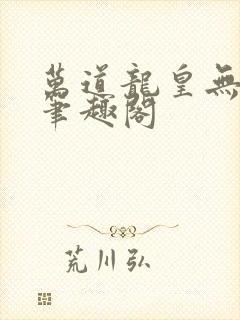 萬道龍皇無
筆趣閣
荒川弘